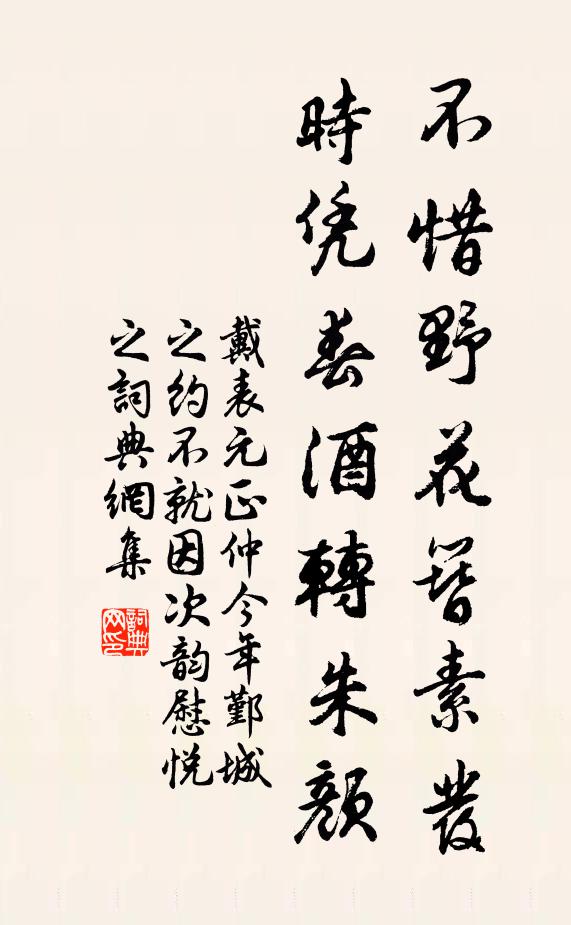 不惜野花簪素發
時凭春酒轉朱顏
戴表元正仲今年鄞城
之約不就因次韵慰悦
之詞典網集
詞典網印